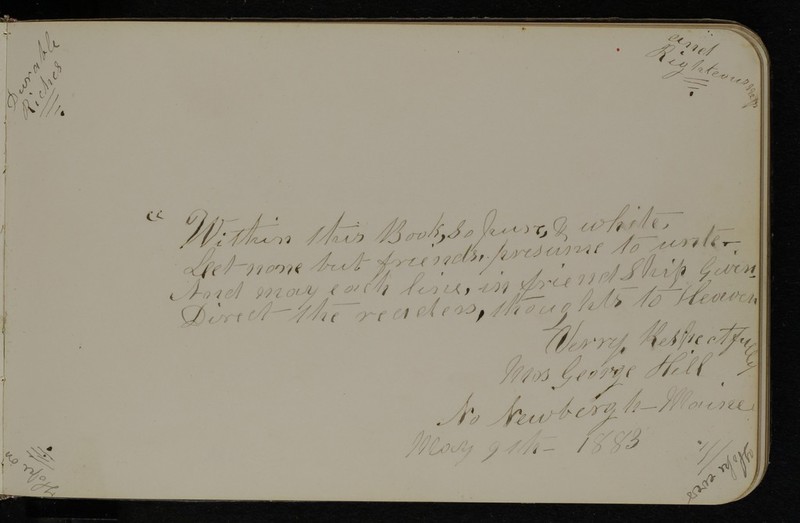 Durable
Riches
and
Righteousness
" Within this Book, So pure, & white,
Let none but friends, presume to write
And may each line, in friend Ship Given,
Direct the readers, thoughts to Heaven
Verry Respectfully
Mrs George Hill
No Newbergh - Maine
May 9th - 1883